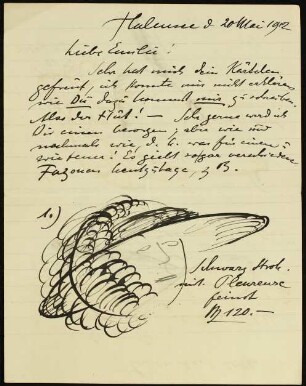 Halensee d. 20 Mai 1912
Liebe Emilie!
Sehr hat mich dein Kärtchen
gefreut, ich konnte mir nicht erklären
wie Du dazu kommst mir zu schreiben
Also der Hut! — Sehr gerne werd ich
Dir einen besorgen, aber wie und
nochmals wie, d. h. was für einen u.
wie teuer! Es giebt sogar verschiedene
Façonen heutzutage, z. B.
1.)
Schwarz Stroh
mit Pleureuse
feinst
M 120.—